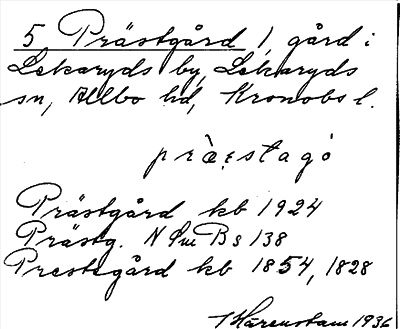 5 Prästgård 1, gård i
Lekaryds by, Lekaryds
sn, Allbo hd, Kronobs l.
præ̀stagó
Prästgård kb 1924
Prästg. N Sm B s 138
Prestegård kb 1854, 1828
Härenstam 1936